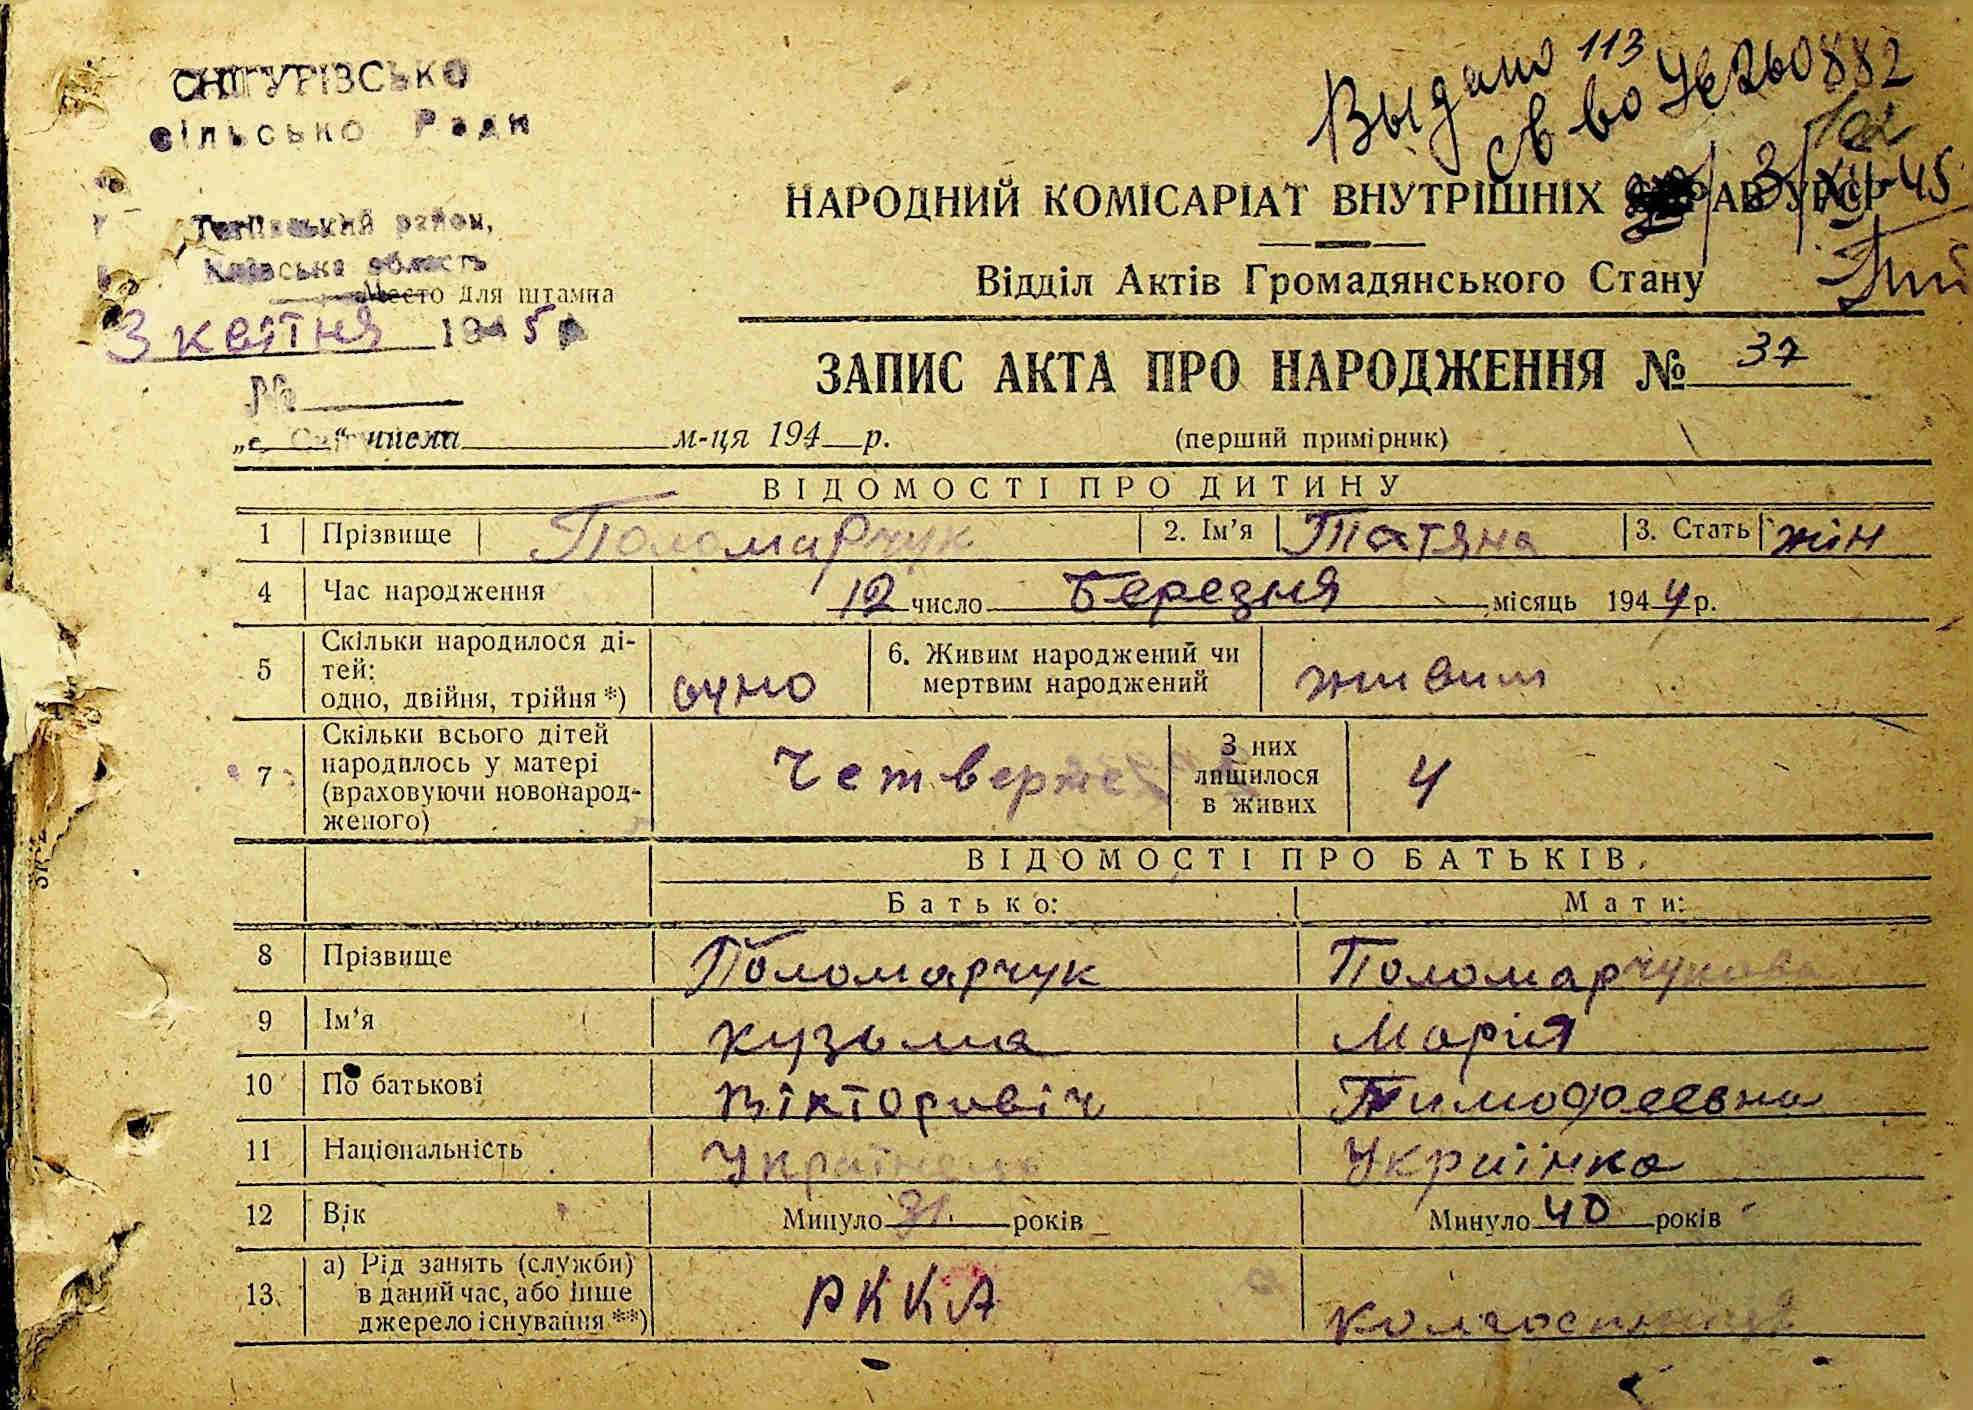 Выдано 113
св во Уб 260882
102
3/XII-45
СНІГУРІВСЬКО
сільсько Ради
район,
Київська область
Место для штампа
3 квітня 1945
№
НАРОДНИЙ КОМІСАРІАТ ВНУТРІШНІХ СПРАВ УРСР
Відділ Актів Громадянського Стану
ЗАПИС АКТА ПРО НАРОДЖЕННЯ № 37
„ “ числа м-ця 194 р. (перший примірник)
ВІДОМОСТІ ПРО ДИТИНУ
1 Прізвище Поломарчук 2. Ім'я Татяна 3. Стать жін
4 Час народження 12 число Березня місяць 1944 р.
5 Скільки народилося ді-
тей:
одно, двійня, трійня *) одно 6. Живим народжений чи
мертвим народжений живим
7 Скільки всього дітей
народилось у матері
(враховуючи новонарод-
женого) Четверже З них
лишилося
в живих 4
ВІДОМОСТІ ПРО БАТЬКІВ
Батько: Мати:
8 Прізвище Поломарчук Поломарчукова
9 Ім'я Кузьма Марія
10 По батькові Вікторовіч Тимофеевна
11 Національність Українець Українка
12 Вік Минуло 31 років Минуло 40 років
13. а) Рід занять (служби)
в даний час, або інше
джерело існування **) РККА Колгоспниця